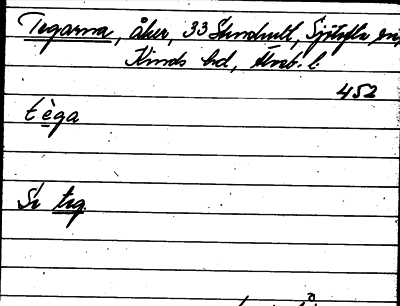 Tegarna, åker, 33 Stenhult, Sjötofta sn,
Kinds hd, Älvsb. l.
452
tèga
Se teg.